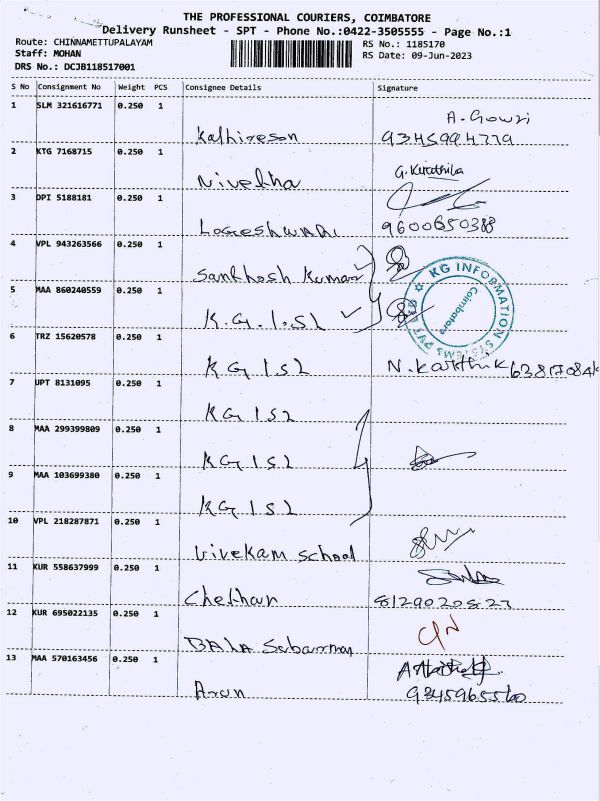 THE PROFESSIONAL COURIERS, COIMBATORE
Delivery Runsheet - SPT - Phone No.:0422-3505555 - Page No.:1
Route: CHINNAMETTUPALAYAM RS No.: 1185170
Staff: MOHAN RS Date: 09-Jun-2023
DRS No.: DCJB118517001
S No Consignment No Weight PCS Consignee Details Signature
1 SLM 321616771 0.250 1
A. Gowri
Kathireson 9345994779
2 KTG 7168715 0.250 1
Nivekha
3 DPI 5188181 0.250 1
Logeshwari 9600650388
4 VPL 943263566 0.250 1
Santhosh Kumar
5 MAA 860240559 0.250 1
K.G.I.SL
KG INFORMATION SYSTEMS PVT LTD
Coimbatore
6 TRZ 15620578 0.250 1
KG ISL N. Karthik
7 UPT 8131095 0.250 1
KG ISL
8 MAA 299399809 0.250 1
KG ISL
9 MAA 103699380 0.250 1
KG ISL
10 VPL 218287871 0.250 1
Vivekam school
11 KUR 558637999 0.250 1
Chethan 8129020827
12 KUR 695022135 0.250 1
BALA
13 MAA 570163456 0.250 1
Arun 9345965560